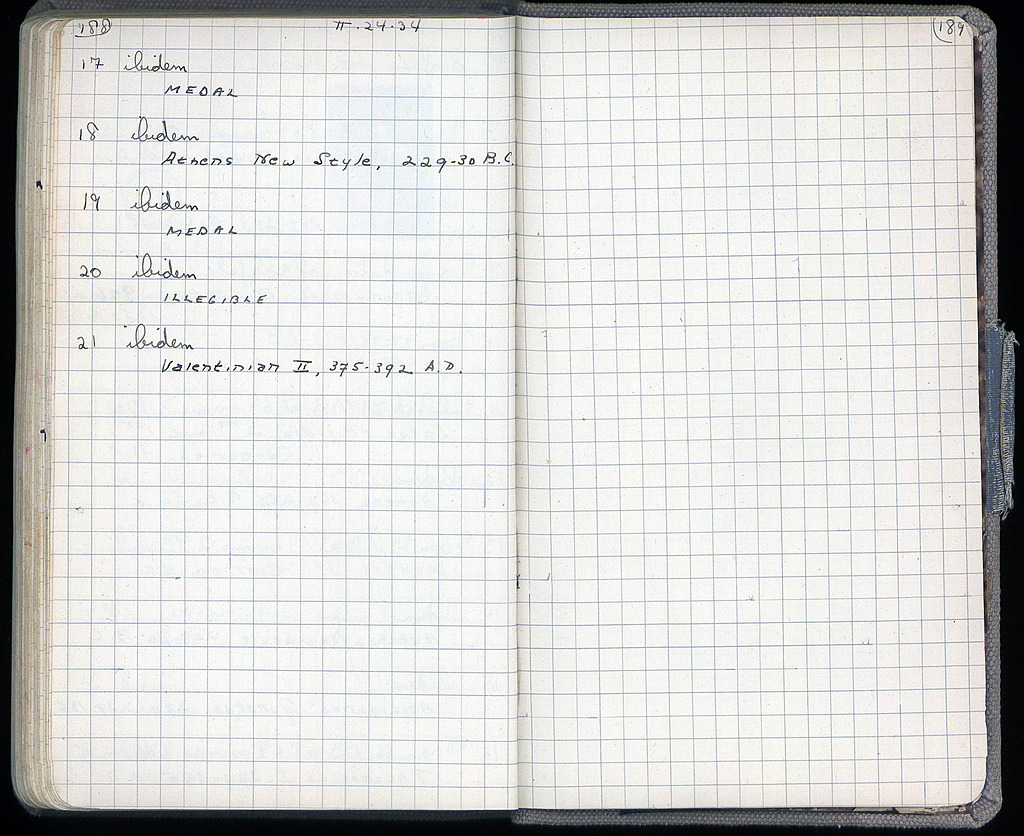 188 II.24.34
17 ibidem
MEDAL
18 ibidem
Athens New Style, 229-30 B.C.
19 ibidem
MEDAL
20 ibidem
ILLEGIBLE
21 ibidem
Valentinian II, 375-392 A.D.
189